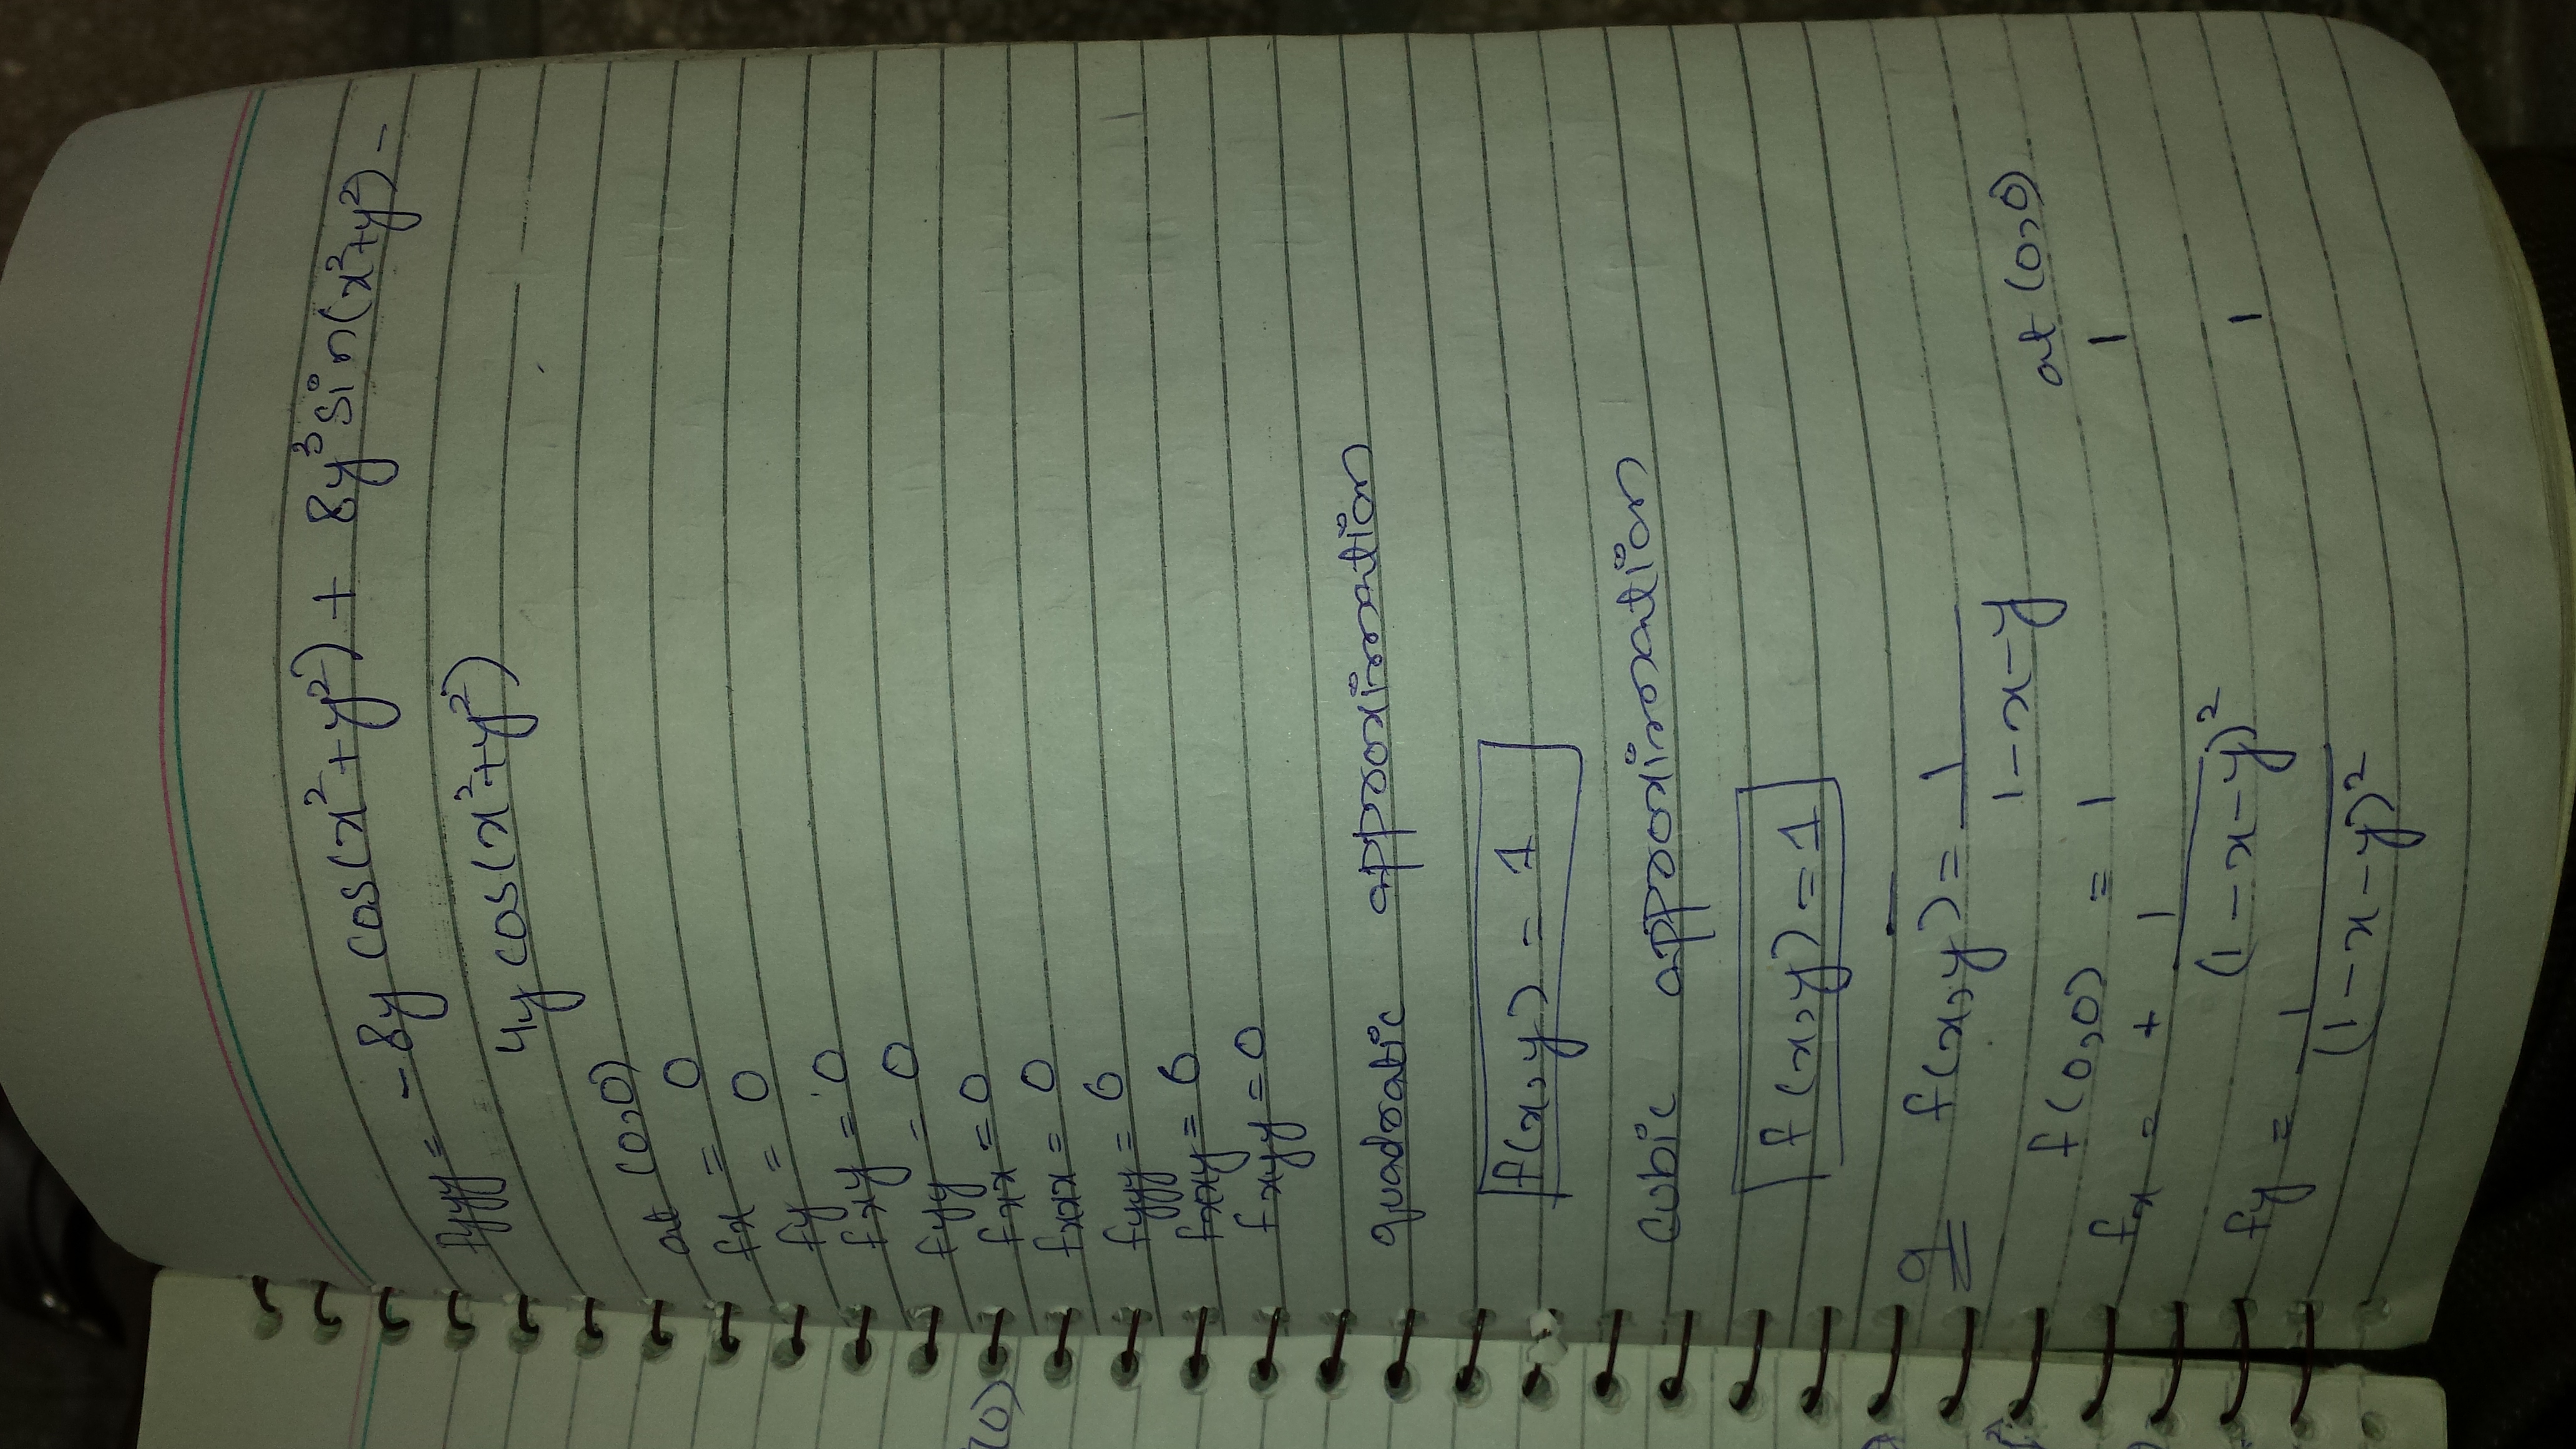 fyyy = -8y cos(x²+y²) + 8y³sin(x²+y²) -
4y cos(x²+y²)
at (0,0)
fx = 0
fy = 0
fxy = 0
fyy = 0
fxx = 0
fxxx = 0
fyyy = 0
fxxy = 0
fxyy = 0
quadratic approximation
f(x,y) = 1
cubic approximation
f(x,y) = 1
9 f(x,y) = 1/(1-x-y)
f(0,0) = 1 at (0,0)
fx = + 1/(1-x-y)² 1
fy = 1/(1-x-y)² 1